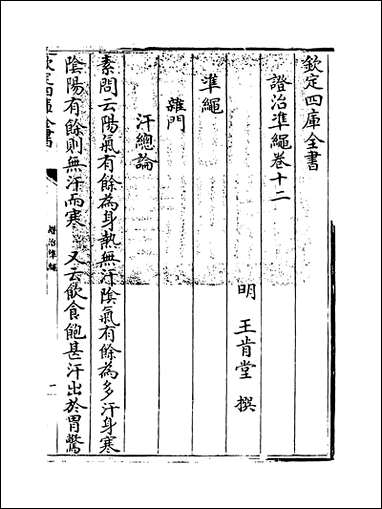 欽定四庫全書
證治準繩卷十二
明 王肯堂 撰
準繩
雜門
汗總論
素問云陽氣有餘為身熱無汗陰氣有餘為多汗身寒
陰陽有餘則無汗而寒 又云飲食飽甚汗出於胃驚
欽定四庫全書
證治準繩
一